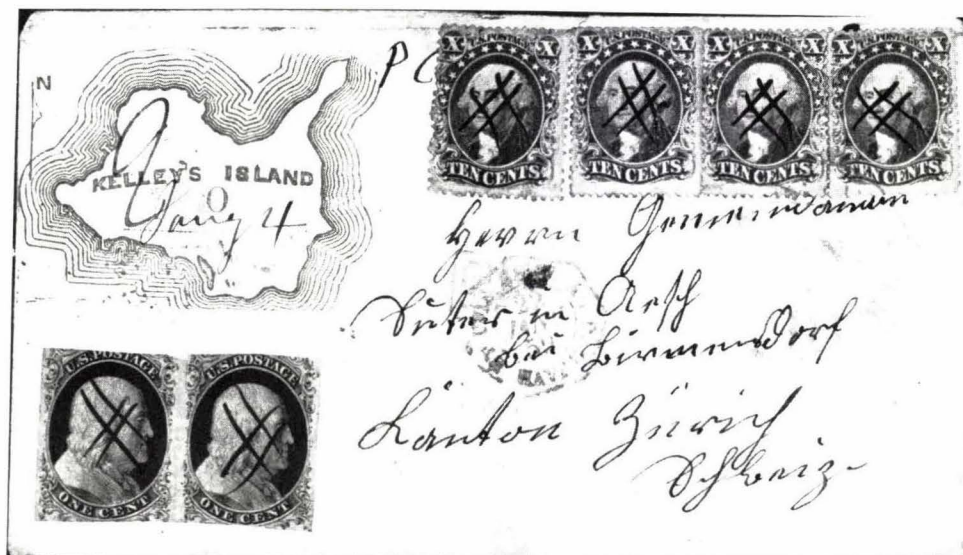 N
KELLEY'S ISLAND
O
Jany 4
P
X U.S. POSTAGE X
TEN CENTS
X U.S. POSTAGE X
TEN CENTS
X U.S. POSTAGE X
TEN CENTS
X U.S. POSTAGE X
TEN CENTS
Herrn Gemeindaman
Suter in Aesch
bei Birmensdorf
Kanton Zürich
Schweiz
U.S. POSTAGE
ONE CENT
U.S. POSTAGE
ONE CENT